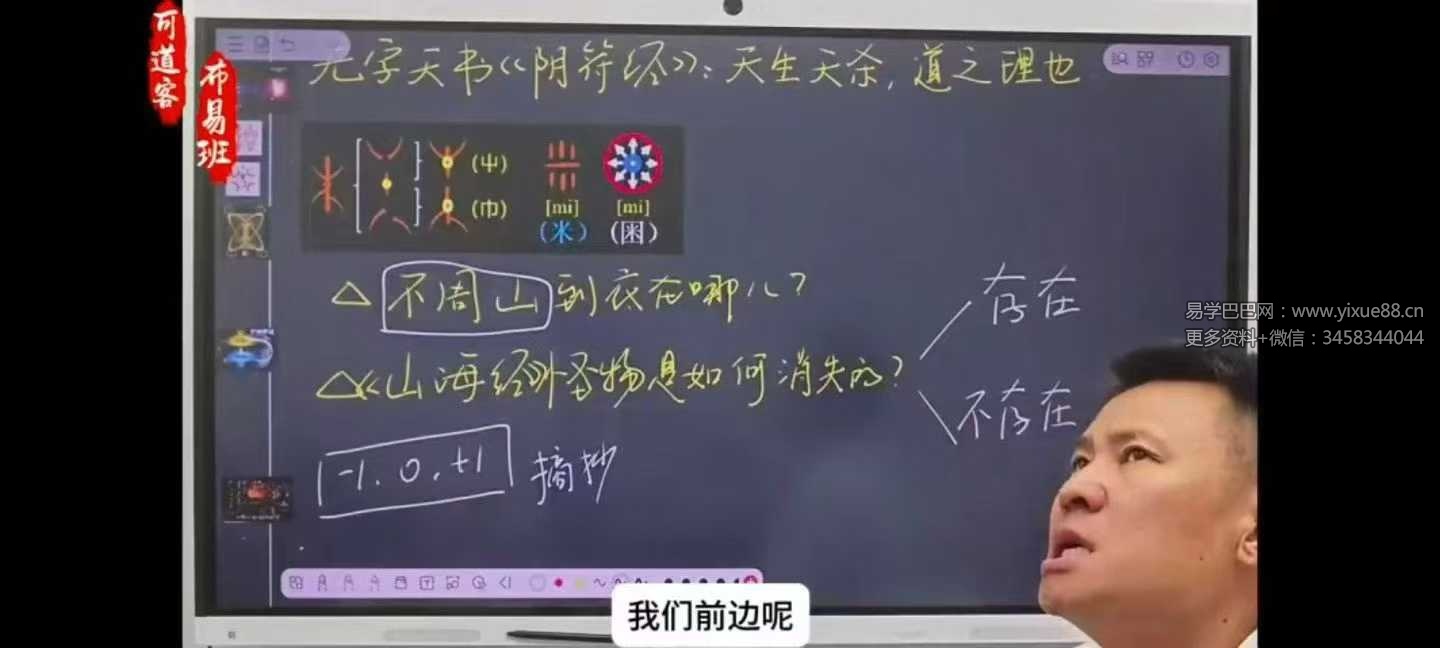 可道客
布易班
无字天书《阴符经》：天生天杀，道之理也
(屮)
(巾)
[mi]
[mi]
(米)
(囷)
△不周山到底在哪儿？
△《山海经》怪物是如何消失的？
存在
不存在
-1.0.+1 摘抄
易学巴巴网：www.yixue88.cn
更多资料+微信：3458344044
我们前边呢